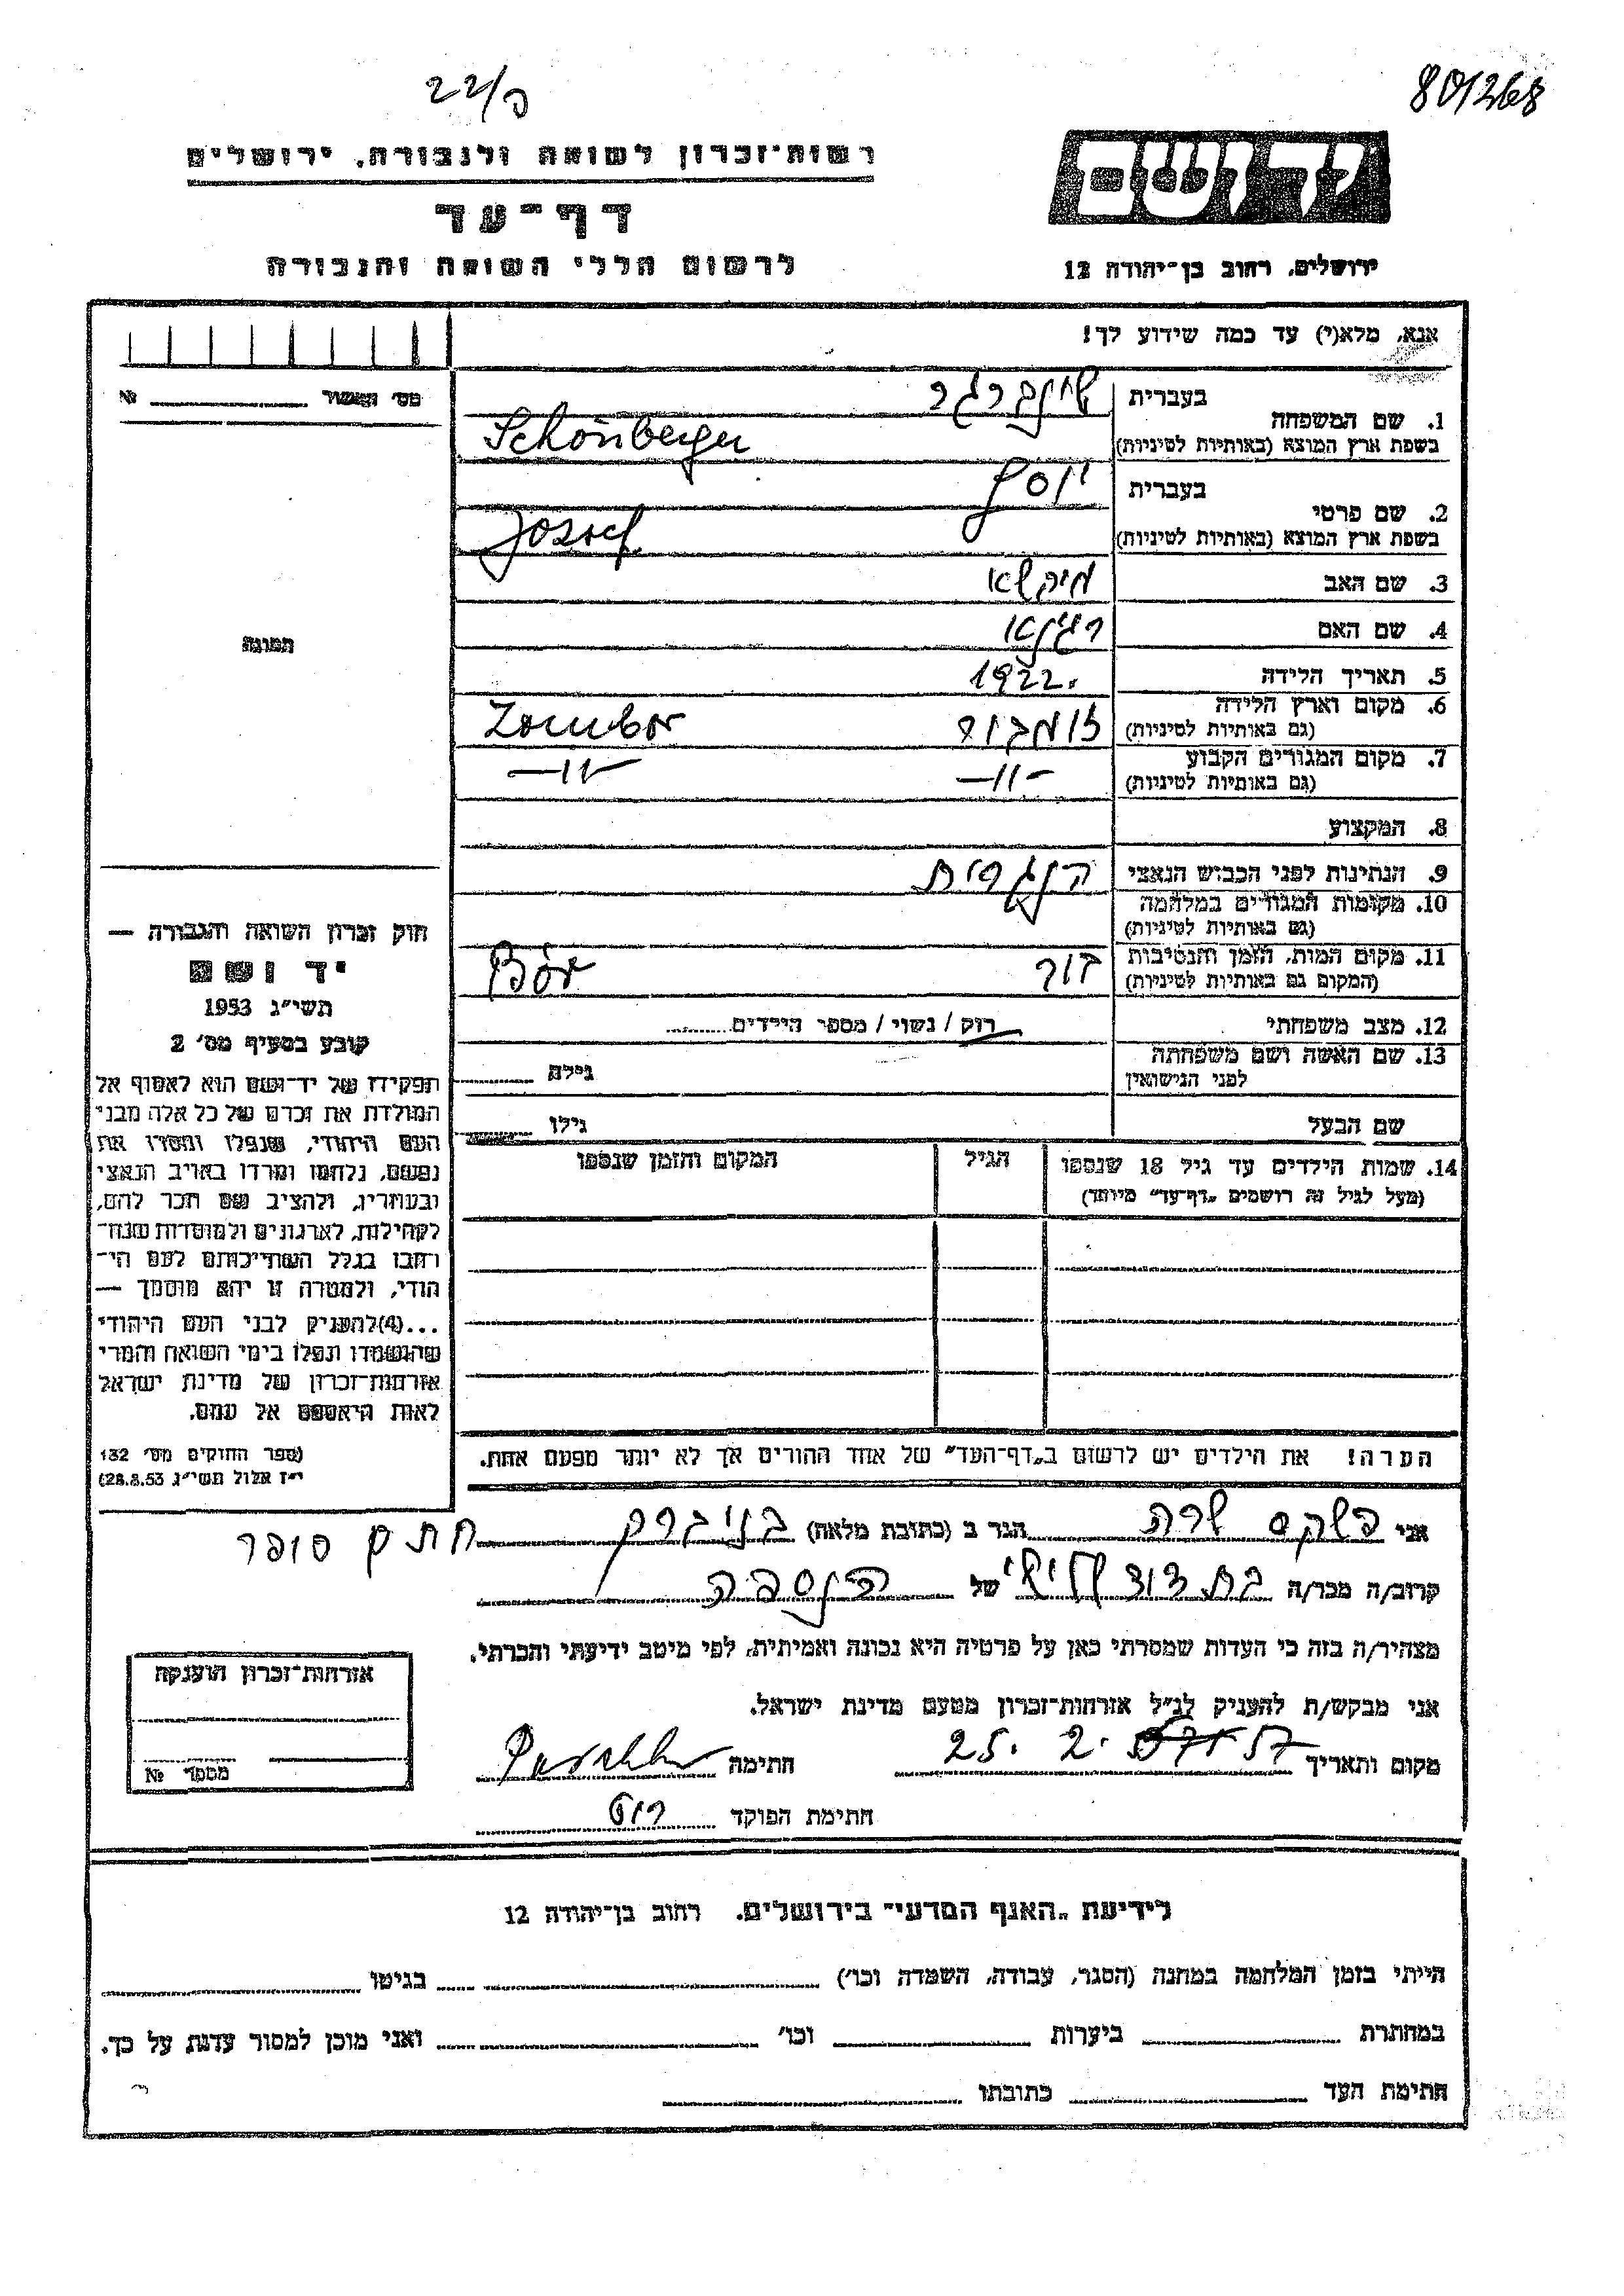 22/ס
801268
רשות-זכרון לשואה ולגבורה, ירושלים
דף-עד
לרשום חללי השואה והגבורה
יד ושם
ירושלים, רחוב בן-יהודה 12
אנא, מלא(י) עד כמה שידוע לך!
מס' האשור № 
1. שם המשפחה בעברית שונברגר
בשפת ארץ המוצא (באותיות לטיניות) Schönberger
2. שם פרטי בעברית יוסף
בשפת ארץ המוצא (באותיות לטיניות) Jozsef
3. שם האב מיקשא
4. שם האם רגינא
5. תאריך הלידה 1922.
6. מקום וארץ הלידה זומבור Zombor
(גם באותיות לטיניות)
7. מקום המגורים הקבוע -11- -11-
(גם באותיות לטיניות)
8. המקצוע
9. הנתינות לפני הכבוש הנאצי הונגרית
10. מקומות המגורים במלחמה
(גם באותיות לטיניות)
11. מקום המות, הזמן והנסיבות בור Bór
(המקום גם באותיות לטיניות)
12. מצב משפחתי רוק / נשוי / מספר הילדים
13. שם האשה ושם משפחתה גילה
לפני הנישואין
שם הבעל גילו
14. שמות הילדים עד גיל 18 שנספו הגיל המקום והזמן שנספו
(מעל לגיל זה רושמים "דף-עד" מיוחד)
הערה! את הילדים יש לרשום ב"דף-העד" של אחד ההורים אך לא יותר מפעם אחת.
תמונה
חוק זכרון השואה והגבורה —
יד ושם
תשי"ג 1953
קובע בסעיף מס' 2
תפקידו של יד-ושם הוא לאסוף אל
המולדת את זכרם של כל אלה מבני
העם היהודי, שנפלו ומסרו את
נפשם, נלחמו ומרדו באויב הנאצי
ובעוזריו, ולהציב שם וזכר להם,
לקהילות, לארגונים ולמוסדות שנח-
רבו בגלל השתייכותם לעם הי-
הודי, ולמטרה זו יהא מוסמך —
...(4)להעניק לבני העם היהודי
שהושמדו ונפלו בימי השואה והמרי
אזרחות-זכרון של מדינת ישראל
לאות היאספם אל עמם.
(ספר החוקים מס' 132
י"ז אלול תשי"ג 28.8.53)
אני פשקס שרה הגר ב (כתובת מלאה) בני ברק חתם סופר
קרוב/ה מכר/ה בת דוד של הנספה
מצהיר/ה בזה כי העדות שמסרתי כאן על פרטיה היא נכונה ואמיתית, לפי מיטב ידיעתי והכרתי.
אני מבקש/ת להעניק לנ"ל אזרחות-זכרון מטעם מדינת ישראל.
מקום ותאריך 25. 2. 57 חתימה
חתימת הפוקד רוט
אזרחות-זכרון הוענקה
מספר №
לידיעת "האגף המדעי" בירושלים. רחוב בן-יהודה 12
הייתי בזמן המלחמה במחנה (הסגר, עבודה, השמדה וכו') בגיטו
במחתרת ביערות וכו' ואני מוכן למסור עדות על כך.
חתימת העד כתובתו